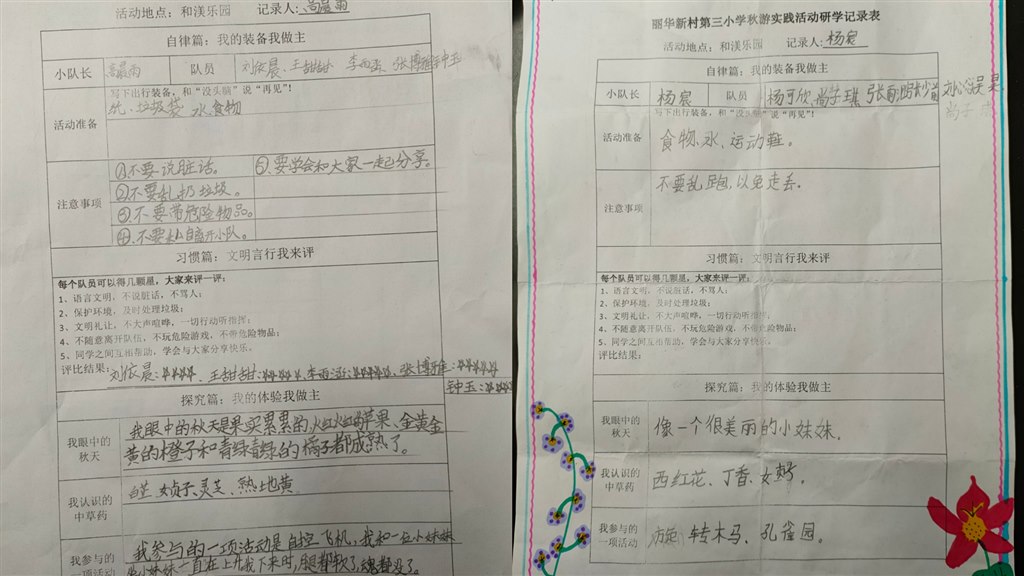 活动地点：和渼乐园 记录人：高晨雨
自律篇：我的装备我做主
小队长 高晨雨 队员 刘依晨、王甜甜 李雨泓 张博雅 钟玉
写下出行装备，和“没头脑”说“再见”！
活动准备
垃圾袋 水 食物
注意事项
①不要说脏话。 ⑤要学会和大家一起分享。
②不要乱扔垃圾。
③不要带危险物品。
④不要私自离开小队。
习惯篇：文明言行我来评
每个队员可以得几颗星，大家来评一评：
1、语言文明，不说脏话，不骂人；
2、保护环境，及时处理垃圾；
3、文明礼让，不大声喧哗，一切行动听指挥；
4、不随意离开队伍，不玩危险游戏，不带危险物品；
5、同学之间互相帮助，学会与大家分享快乐。
评比结果：刘依晨：★★★★、王甜甜：★★★★、李雨泓：★★★★★、张博雅：★★★★★
钟玉：★★★★
探究篇：我的体验我做主
我眼中的秋天
我眼中的秋天是果实累累的，火红火红的苹果、金黄金
黄的橙子和青绿青绿的橘子都成熟了。
我认识的中草药
女贞子、灵芝、熟地黄
我参与的一项活动
我参与的一项活动是自控飞机，我和一位小妹妹
小妹妹一直在上升我下来时，腿都软了，魂都没了。
丽华新村第三小学秋游实践活动研学记录表
活动地点：和渼乐园 记录人：杨宸
自律篇：我的装备我做主
小队长 杨宸 队员 杨可欣、尚子琪、张雨
尚子
写下出行装备，和“没头脑”说“再见”！
活动准备
食物、水、运动鞋。
注意事项
不要乱跑，以免走丢。
习惯篇：文明言行我来评
每个队员可以得几颗星，大家来评一评：
1、语言文明，不说脏话，不骂人；
2、保护环境，及时处理垃圾；
3、文明礼让，不大声喧哗，一切行动听指挥；
4、不随意离开队伍，不玩危险游戏，不带危险物品；
5、同学之间互相帮助，学会与大家分享快乐。
评比结果：
探究篇：我的体验我做主
我眼中的秋天
像一个很美丽的小妹妹。
我认识的中草药
西红花、丁香、
我参与的一项活动
转木马、孔雀园。